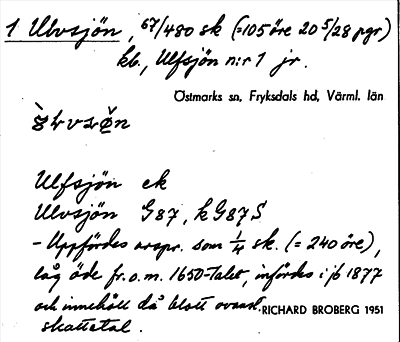 1 Ulvsjön, 67/480 sk (=105 öre 20 5/28 pgr)
kb., Ulfsjön n:r 1 jr.
Östmarks sn, Fryksdals hd, Värml. län
Ulfsjön ek
Ulvsjön G87, kG87S
- Uppfördes urspr. som 1/4 sk. (= 240 öre),
låg öde fr.o.m. 1650-talet, infördes i jb 1877
och innehöll då blott ovanst.
RICHARD BROBERG 1951
skattetal.